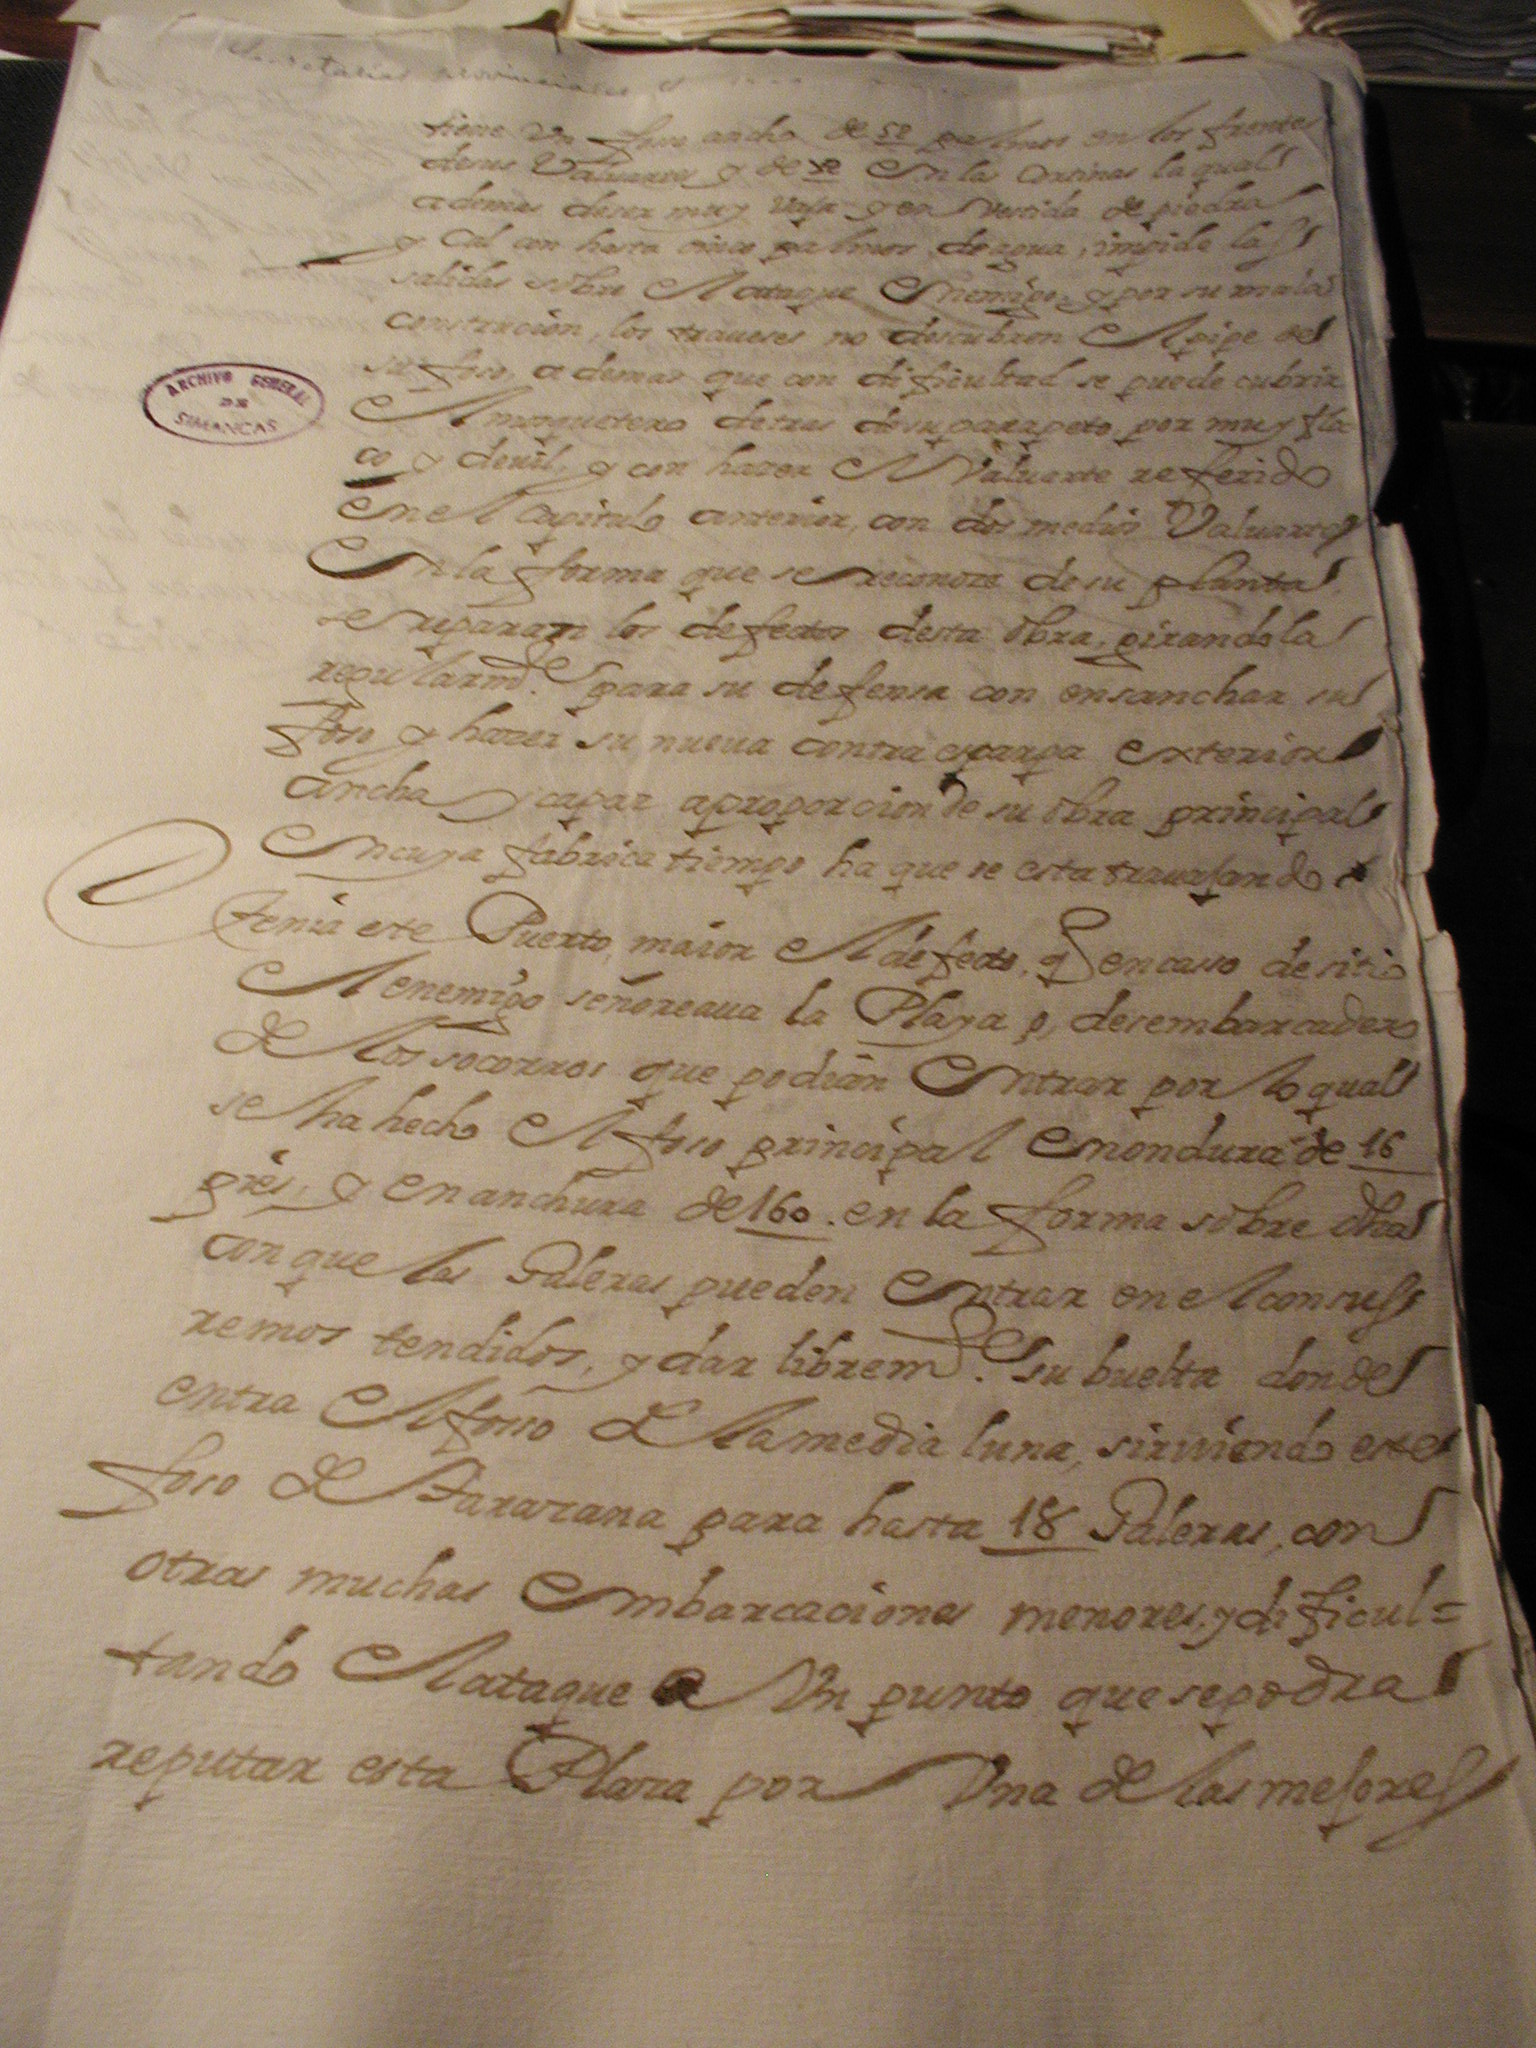 Secretarias provinciales
tiene Vn foso ancho de 52 palmos en los frentes
desus Valuartes y de en las Cortinas la qual
ademas deser muy vaja y en vestida de piedra
y Cal con hasta cinco palmos de agua, impide las
salidas sobre el ataque Enemigo, y por su mala
construcion, los traueses no descubren el pipe de
su foso, ademas que con dificultad se puede cubrir
el mosquetero detras desu parapeto por muy fla-
co y deuil, y con hazer el Valuarte referido
en el Capitulo anterior, con dos medios Valuartes
En la forma que se reconoze de su planta
se reparan los defectos desta obra, girandola
regularmte. para su defensa con ensanchar su
foso y hazer su nueua contraescarpa exterior
ancha y capaz a proporcion de su obra principal
En cuya fabrica tiempo ha que se esta trauajando
tenia este Puerto, maior el defecto, q en caso de sitio
el enemigo señoreaua la Playa o, desembarcadero
de los socorros que podian Entrar por lo qual
se ha hecho el foso principal en ondura de 16
pies, y en anchura de 160. en la forma sobre dha
con que las Galeras pueden Entrar en el con sus
remos tendidos, y dar libremte. su buelta donde
entra el foso de la media luna, siruiendo este
foso de Tarazana para hasta 18 Galeras, con
otras muchas Embarcaciones menores, y dificul=
tando el ataque a Vn punto que se podra
reputar esta Plaza por Vna de las mejores
ARCHIVO GENERAL
DE
SIMANCAS